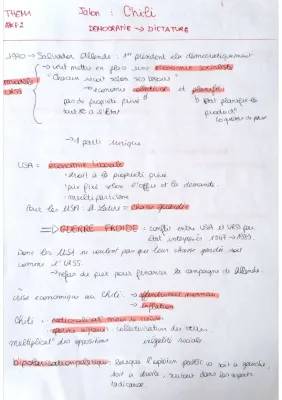 THEM1
AXE 2
Jalon : Chili
DEMOCRATIE → DICTATURE
1970 → Salvador Allende : 1er président élu démocratiquement
→ veut mettre en place une économie socialiste
"Chacun reçoit selon ses besoins"
modèle URSS
→ économie collective et planifiée
pas de propriété privé
tout est à l'Etat
Etat planifie les
→ 1 parti unique
USA = économie libérale
• droit à la propriété privé
• prix fixé selon l'offre et la demande
• multipartisme
Pour les USA A. Latine = chasse gardée
⇒ GUERRE FROIDE = conflit entre USA et URSS par
état interposés 1947 → 1989.
Donc les USA ne veulent pas que leur chasse gardée soit
comme l'URSS.
→ refus de prêt pour financer la campagne de Allende.
Crise économique au Chili : →
→ inflation
Chili : → nationalisat° mines de cuivre
→ réforme agraire : collectivisation des terres
multiplicat° des oppositions inégalité sociales
bipolarisation politique : lorsque l'opinion public va soit à gauche,
soit à droite, surtout dans les aspects
radicaux.